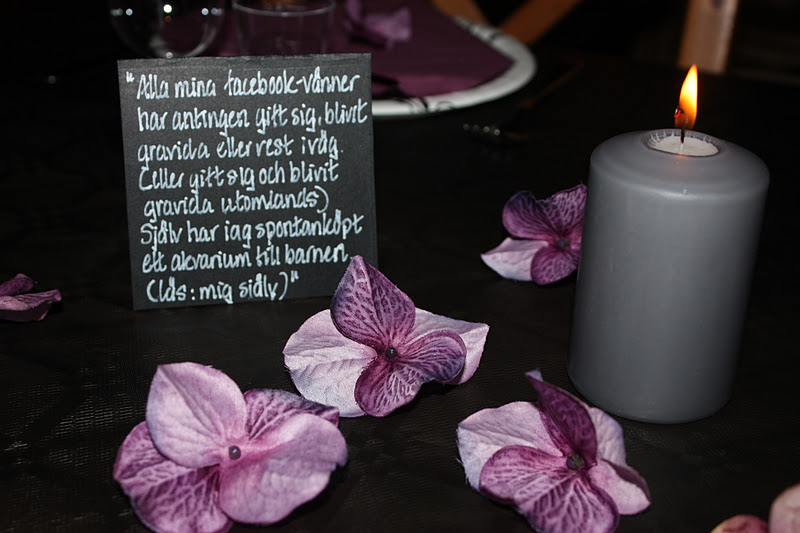 "Alla mina facebook-vänner
har antingen gift sig, blivit
gravida eller rest iväg.
(Eller gift sig och blivit
gravida utomlands)
Själv har jag spontanköpt
ett akvarium till barnen
(läs: mig själv)"